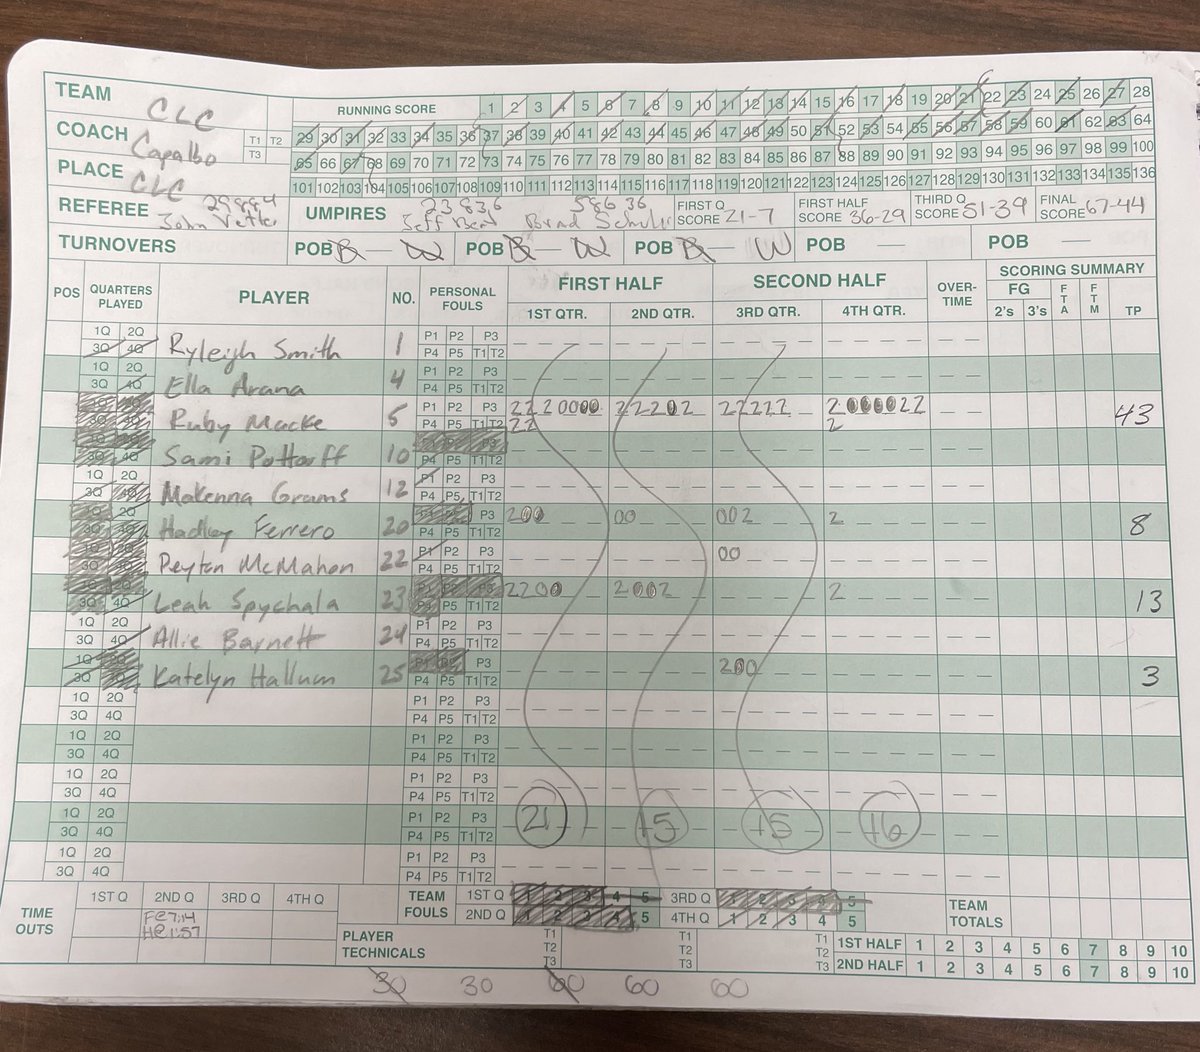 TEAM CLC
RUNNING SCORE 1 2 3 4 5 6 7 8 9 10 11 12 13 14 15 16 17 18 19 20 21 22 23 24 25 26 27 28
COACH Capalbo T1 T2 T3
29 30 31 32 33 34 35 36 37 38 39 40 41 42 43 44 45 46 47 48 49 50 51 52 53 54 55 56 57 58 59 60 61 62 63 64
65 66 67 68 69 70 71 72 73 74 75 76 77 78 79 80 81 82 83 84 85 86 87 88 89 90 91 92 93 94 95 96 97 98 99 100
PLACE CLC
101 102 103 104 105 106 107 108 109 110 111 112 113 114 115 116 117 118 119 120 121 122 123 124 125 126 127 128 129 130 131 132 133 134 135 136
REFEREE 29884 John Vetter UMPIRES 23836 Jeff Bent 58636 Brad FIRST Q SCORE 21-7 FIRST HALF SCORE 36-29 THIRD Q SCORE 51-39 FINAL SCORE 67-44
TURNOVERS POB B — W POB B — W POB B — W POB — POB —
POS QUARTERS PLAYED PLAYER NO. PERSONAL FOULS FIRST HALF SECOND HALF OVER-TIME SCORING SUMMARY
1ST QTR. 2ND QTR. 3RD QTR. 4TH QTR. FG 2's 3's FTA FTM TP
1Q 2Q P1 P2 P3
3Q 4Q Ryleigh Smith 1 P4 P5 T1 T2
1Q 2Q P1 P2 P3
3Q 4Q Ella Arana 4 P4 P5 T1 T2
P1 P2 P3 2220000 22202 22222 2000022
Ruby Macke 5 P4 P5 T1 T2 22 2 43
3Q 4Q Sami Pottorff 10 P4 P5 T1 T2
1Q 2Q P1 P2 P3
3Q Makenna Grams 12 P4 P5 T1 T2
2Q P3 200 00 002 2
3Q 4Q Hadley Ferrero 20 P4 P5 T1 T2 8
P1 P2 P3 00
3Q 4Q Peyton McMahon 22 P4 P5 T1 T2
P1 P2 P3 2200 2002 2
3Q 4Q Leah Spychala 23 P4 P5 T1 T2 13
1Q 2Q P1 P2 P3
3Q 4Q Allie Barnett 24 P4 P5 T1 T2
1Q P1 P2 P3 200
3Q Katelyn Hallum 25 P4 P5 T1 T2 3
1Q 2Q P1 P2 P3
3Q 4Q P4 P5 T1 T2
1Q 2Q P1 P2 P3
3Q 4Q P4 P5 T1 T2
1Q 2Q P1 P2 P3
3Q 4Q P4 P5 T1 T2
1Q 2Q P1 P2 P3 21 15 15 16
3Q 4Q P4 P5 T1 T2
1Q 2Q P1 P2 P3
3Q 4Q P4 P5 T1 T2
TIME OUTS 1ST Q 2ND Q 3RD Q 4TH Q TEAM FOULS 1ST Q 1 2 3 4 5 3RD Q 1 2 3 4 5 TEAM TOTALS
FC 7:14 2ND Q 1 2 3 4 5 4TH Q 1 2 3 4 5
HC 1:57
PLAYER TECHNICALS T1 T1 T1 1ST HALF 1 2 3 4 5 6 7 8 9 10
T2 T2 T2
T3 T3 T3 2ND HALF 1 2 3 4 5 6 7 8 9 10
30 30 60 60 60